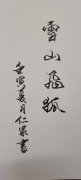 雪山飛狐
壬寅夏月仁宏書